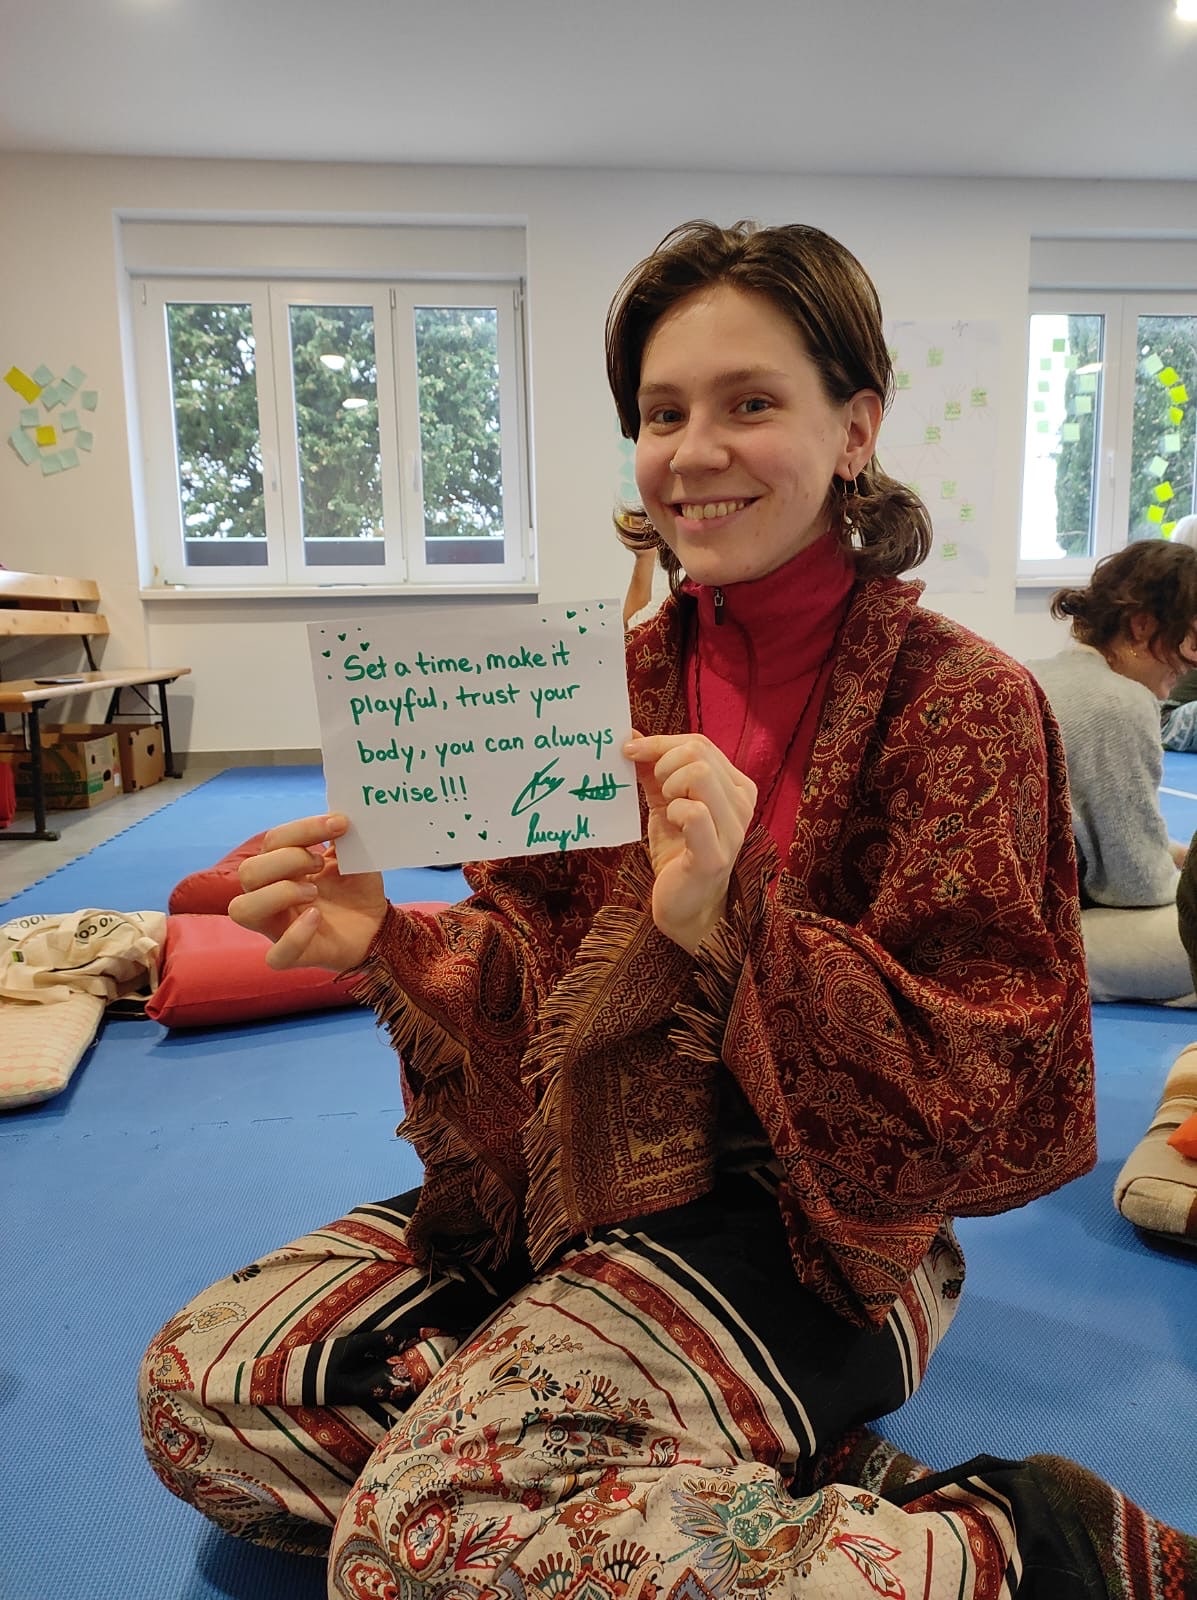 Set a time, make it
playful, trust your
body, you can always
revise!!!
Lucy M.